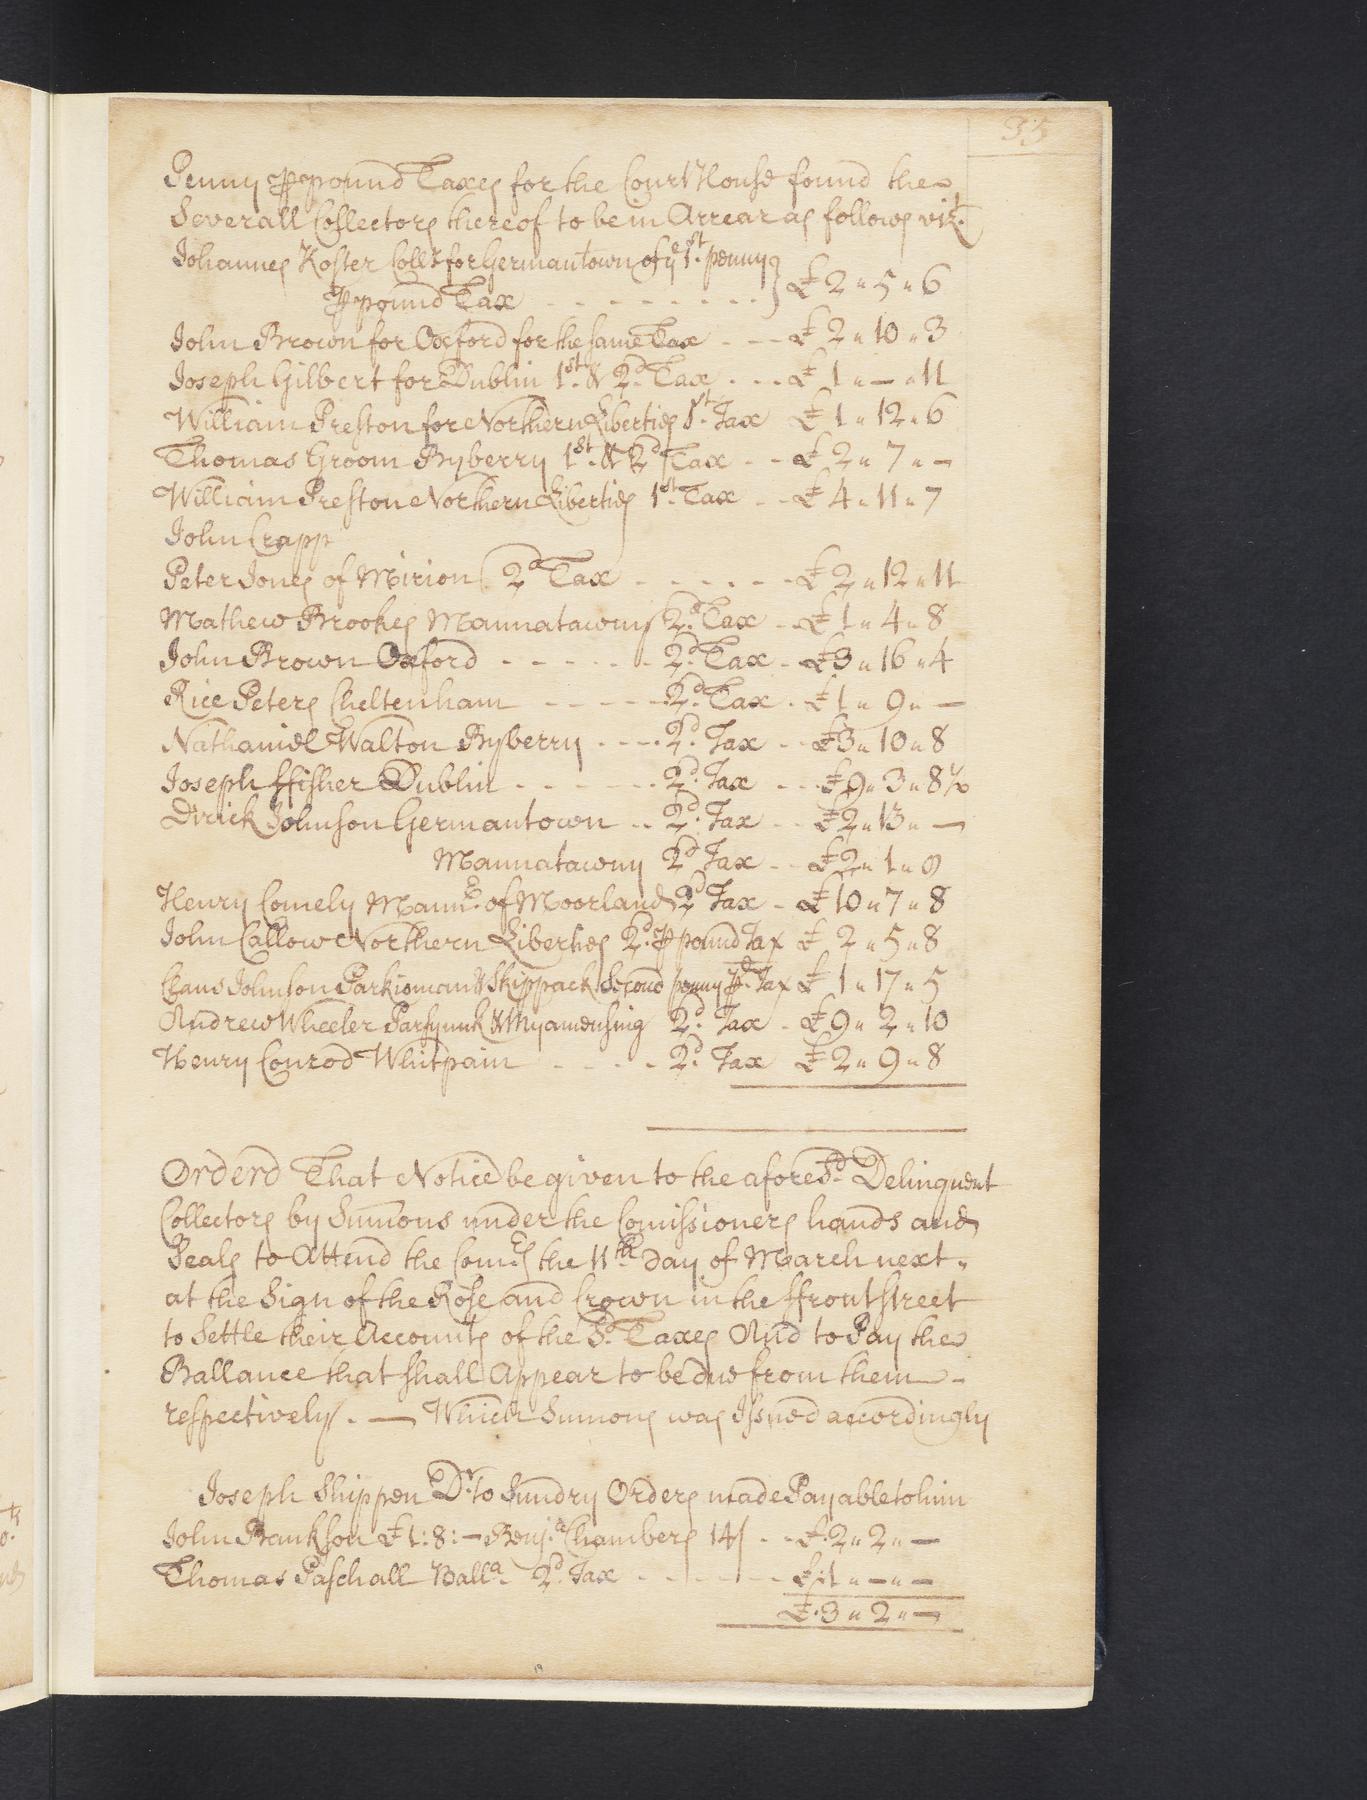 35
Penny ⅌ pound Taxes for the Court House found the
Severall Collectors thereof to be in Arrear as follows viz.
Johannes Koster Collr. for Germantown of ye 1st. penny
⅌ pound Tax - - - - - - - - - } £ 2 " 5 " 6
John Brown for Oxford for the same Tax - - - £ 2 " 10 " 3
Joseph Gilbert for Dublin 1st. & 2d. Tax - - - £ 1 " — " 11
William Preston for Northern Liberties 1st. Tax £ 1 " 12 " 6
Thomas Groom Byberry 1st. & 2d Tax - - £ 2 " 7 " —
William Preston Northern Liberties 1st. Tax - - £ 4 " 11 " 7
John Crapp
Peter Jones of Mirion 2d Tax - - - - - - £ 2 " 12 " 11
Mathew Brookes Mannatawny 2d. Tax - £ 1 " 4 " 8
John Brown Oxford - - - - - - 2d. Tax - £3 " 16 " 4
Rice Peters Cheltenham - - - - - 2d. Tax - £ 1 " 9 " —
Nathaniel Walton Byberry - - - - 2d. Tax - - £3 " 10 " 8
Joseph ffisher Dublin - - - - - - 2d. Tax - - - £ 9 " 3 " 8½
Dirick Johnson Germantown - - 2d. Tax - - £2 " 13 " —
Mannatawny 2d Tax - - £2 " 1 " 9
Henry Comely Mannr. of Moorland 2d Tax - £ 10 " 7 " 8
John Callow Northern Liberties 2d. ⅌ pound Tax £ 2 " 5 " 8
Claus Johnson Parkioman & Skippack Second penny ⅌d. Tax £ 1 " 17 " 5
Andrew Wheeler Passyunk & Myamensing 2d. Tax - £ 9 " 2 " 10
Henry Conrod Whitpain - - - - 2d. Tax £ 2 " 9 " 8
Orderd That Notice be given to the aforesd. Delinquent
Collectors by Sumons under the Comissioners hands and
Seals to Attend the Comrs. the 11th. day of March next
at the Sign of the Rose and Crown in the ffront street
to Settle their Accounts of the Sd. Taxes And to Pay the
Ballance that shall Appear to be due from them —
respectively. — Which Sumons was Issued accordingly
Joseph Shippen Dr. to Sundry Orders made Payable to him
John Bankson £ 1 : 8 : — Benja. Chambers 14/ - - £ 2 " 2 " —
Thomas Paschall Balla. 2d. Tax - - - - - - £ 1 " — " —
£ 3 " 2 " —